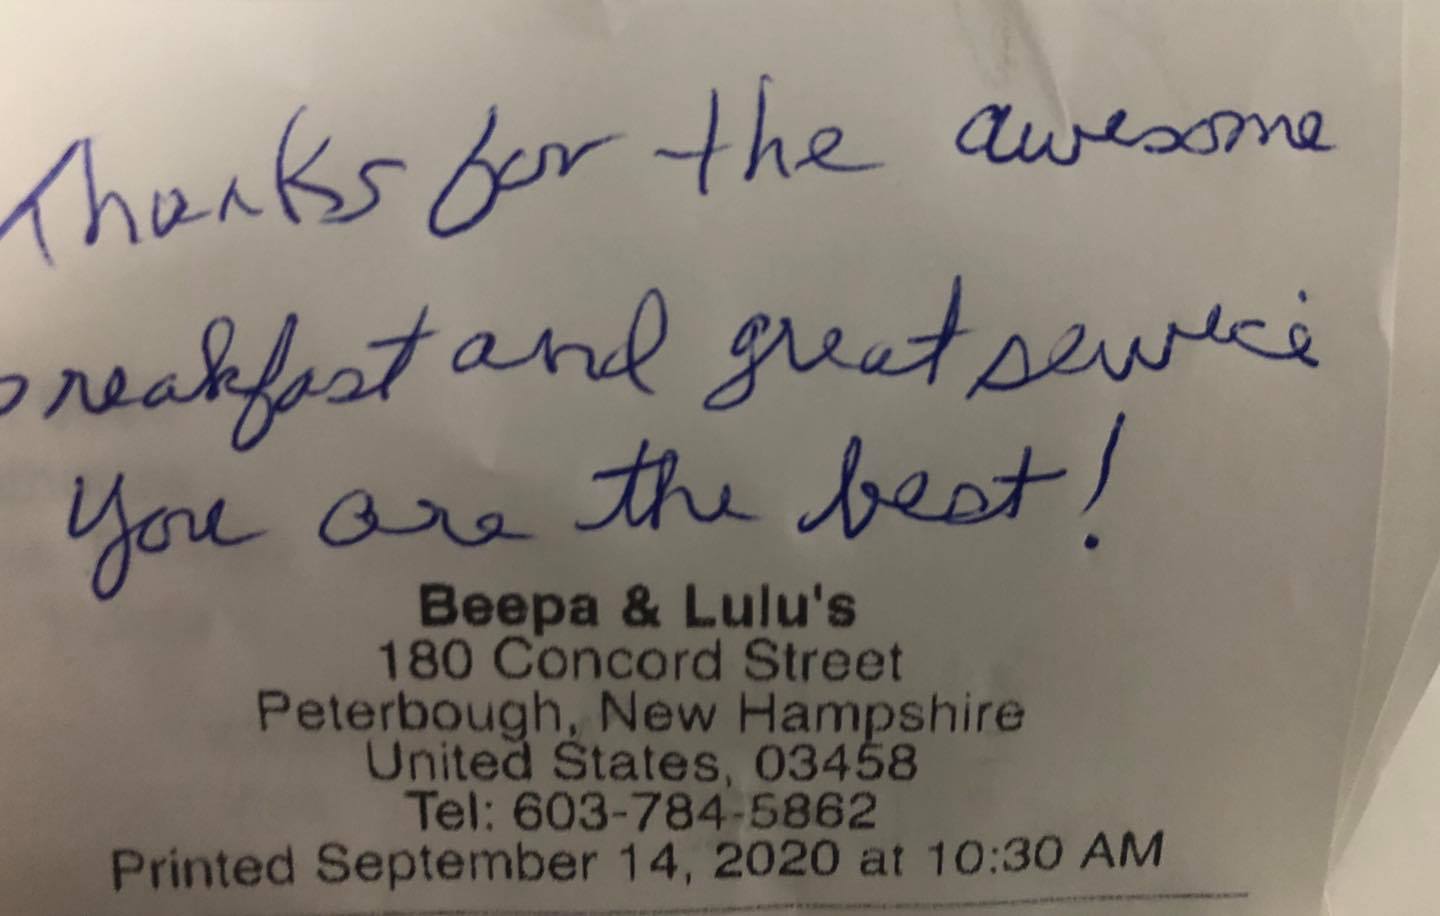 Thanks for the awesome
breakfast and great service
You are the best!
Beepa & Lulu's
180 Concord Street
Peterbough, New Hampshire
United States, 03458
Tel: 603-784-5862
Printed September 14, 2020 at 10:30 AM